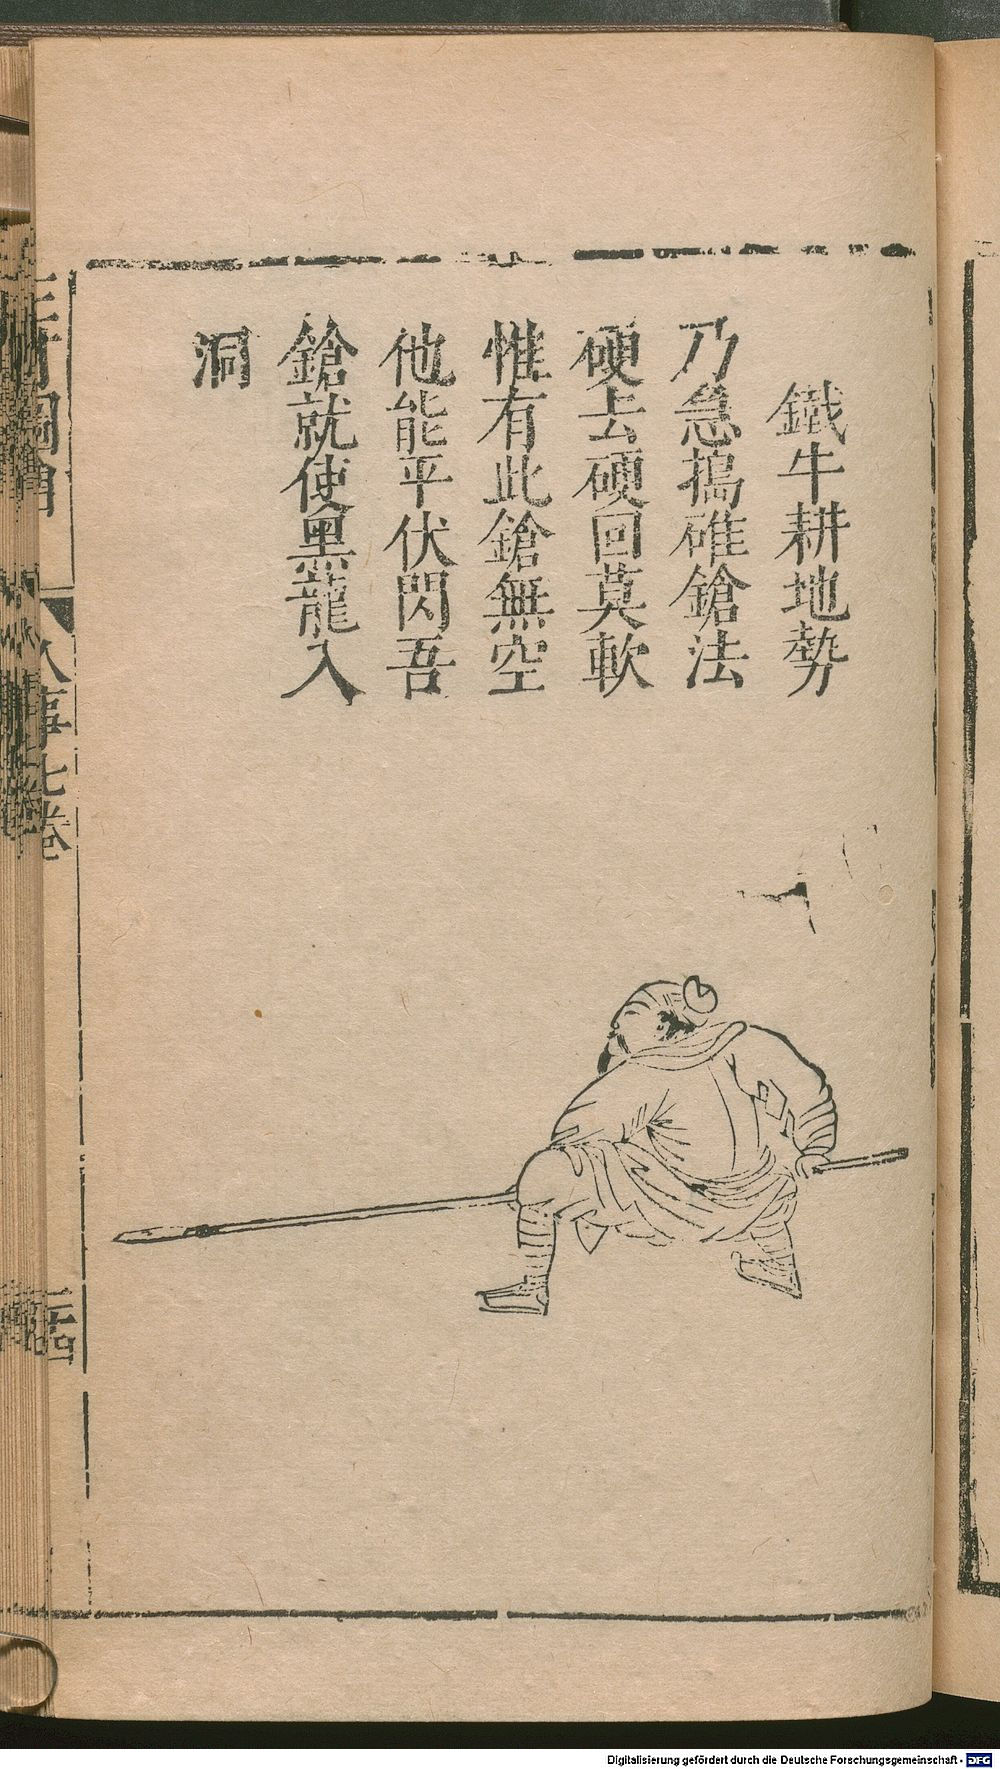 鐵牛耕地勢
乃急搗碓鎗法
硬去硬回莫軟
惟有此鎗無空
他能平伏閃吾
鎗就使黑龍入
洞
人事七卷
Digitalisierung gefördert durch die Deutsche Forschungsgemeinschaft - DFG